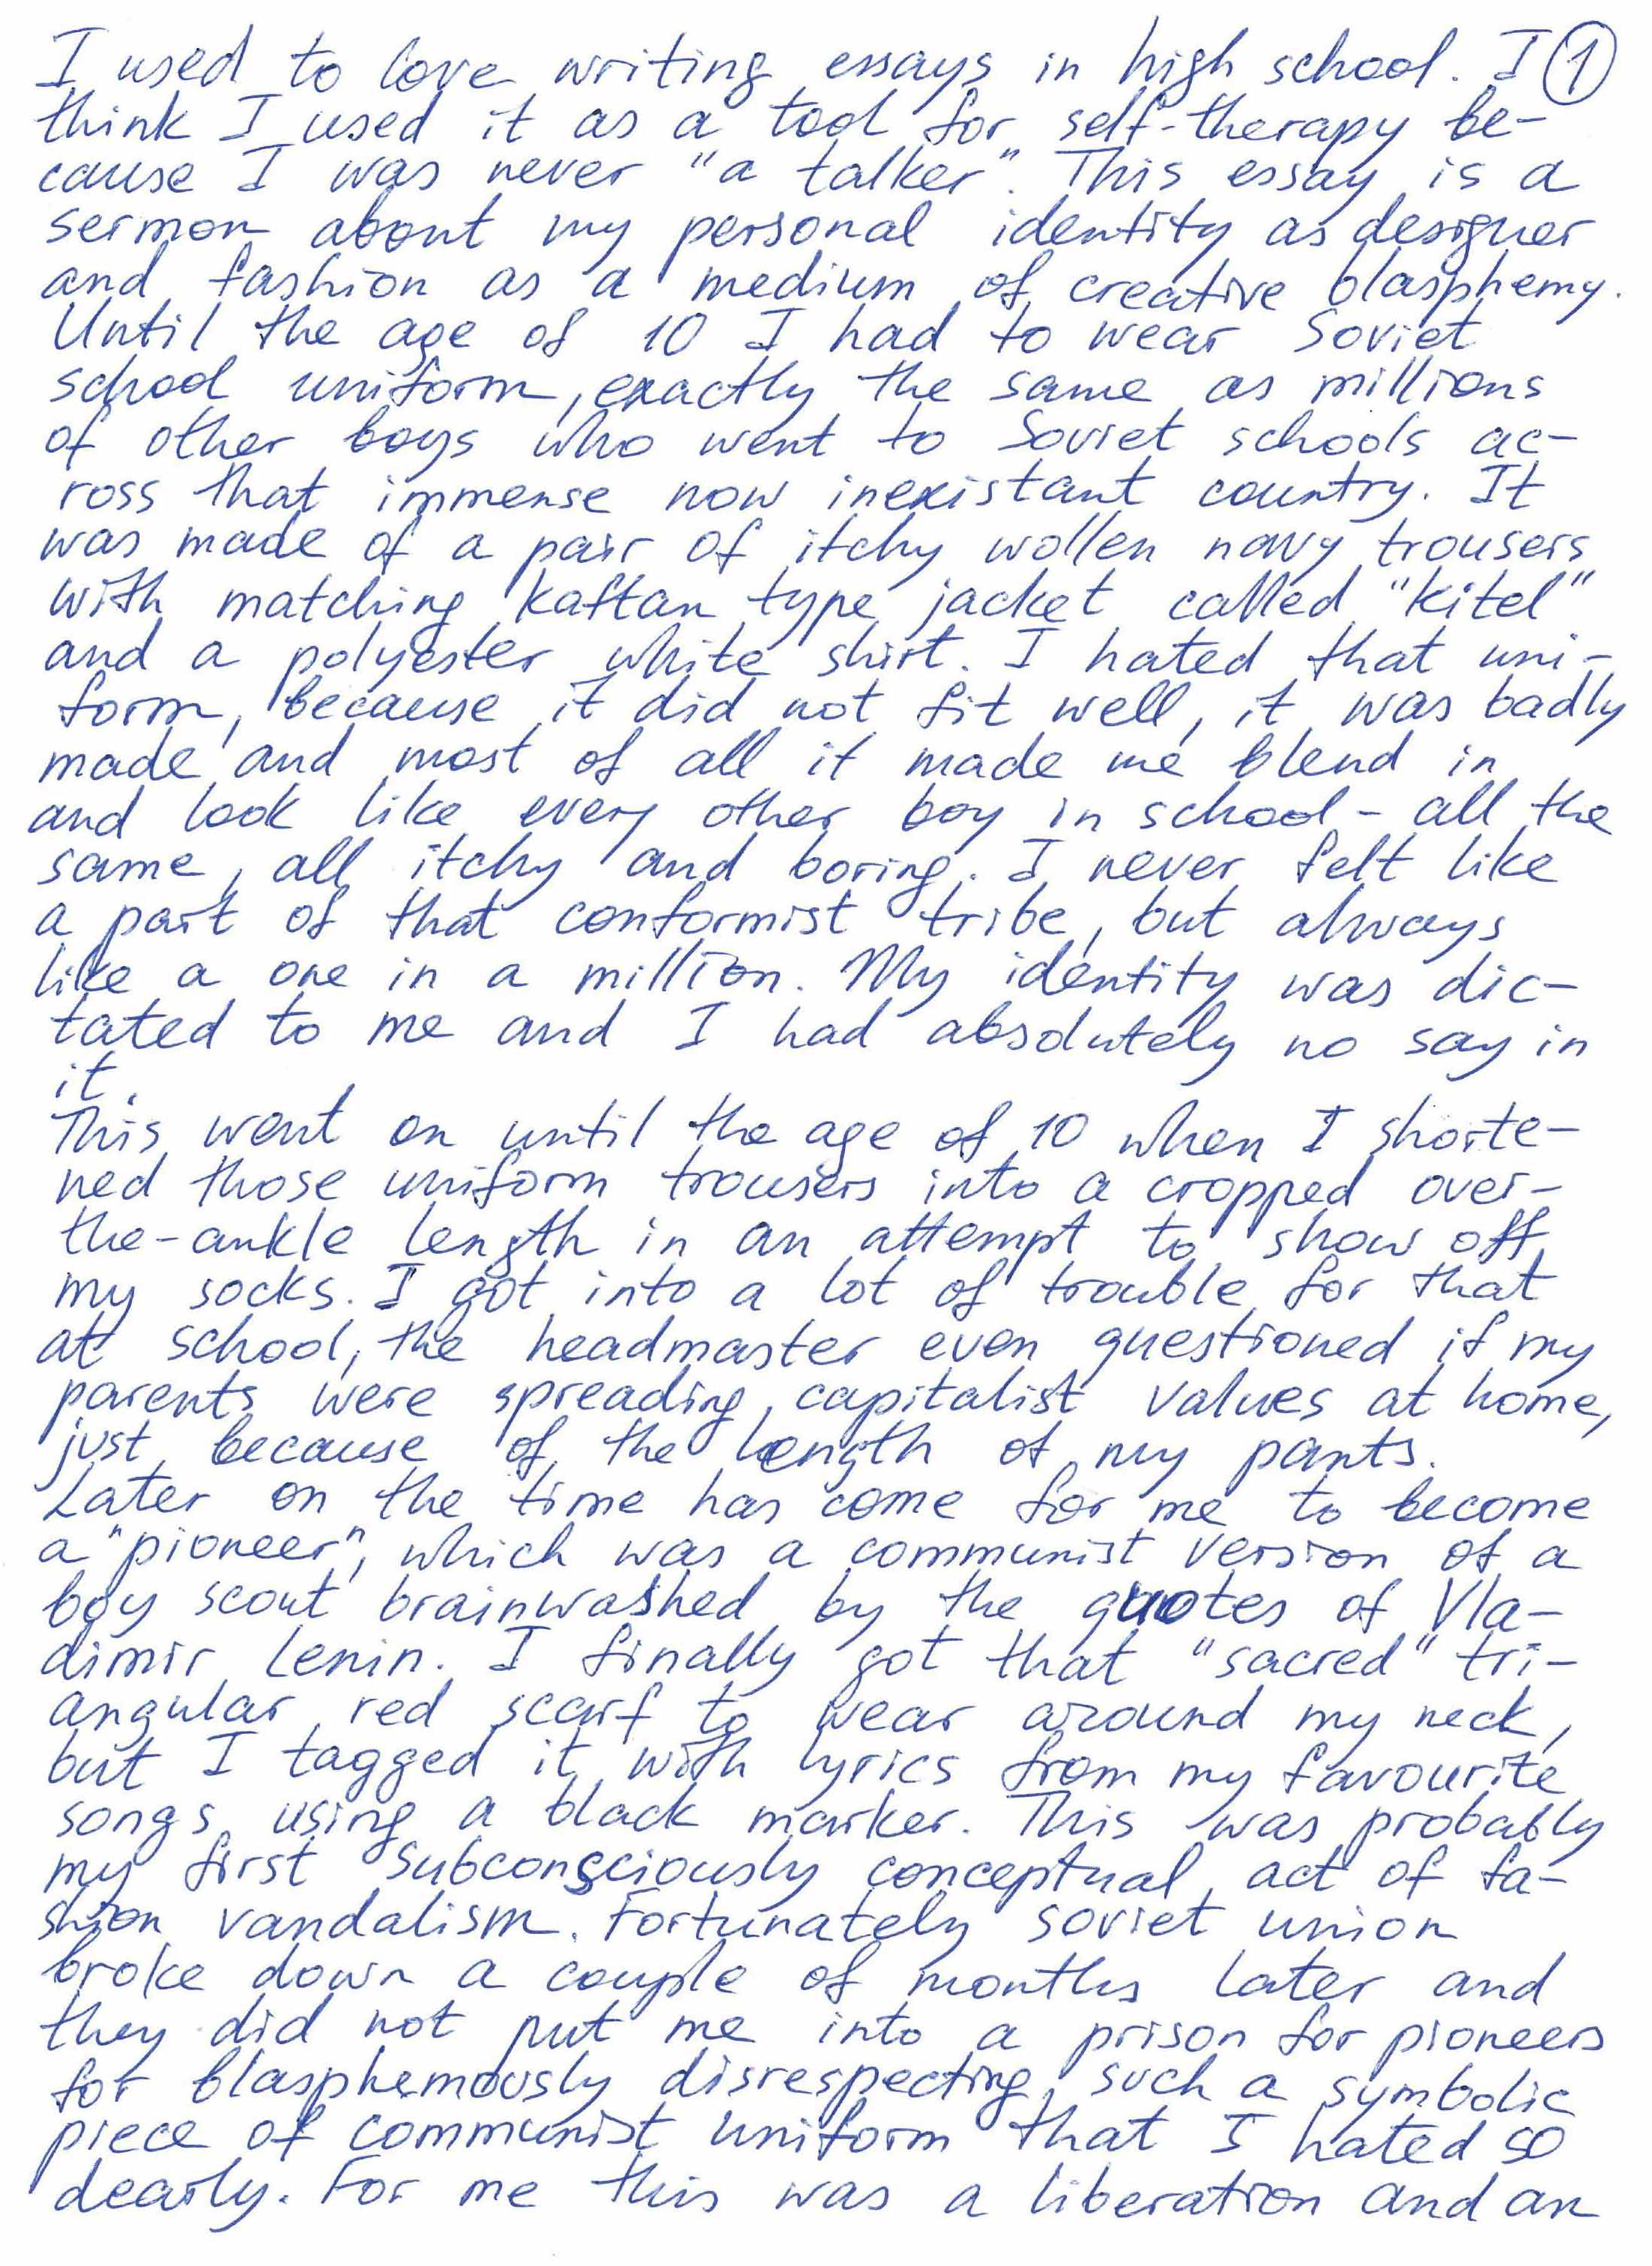 I used to love writing essays in high school. I ①
think I used it as a tool for self-therapy be-
cause I was never "a talker". This essay is a
sermon about my personal identity as designer
and fashion as a medium of creative blasphemy.
Until the age of 10 I had to wear Soviet
school uniform, exactly the same as millions
of other boys who went to Soviet schools ac-
ross that immense now inexistant country. It
was made of a pair of itchy wollen navy trousers
with matching kaftan type jacket called "kitel"
and a polyester white shirt. I hated that uni-
form, because it did not fit well, it was badly
made and most of all it made me blend in
and look like every other boy in school - all the
same, all itchy and boring. I never felt like
a part of that conformist tribe, but always
like a one in a million. My identity was dic-
tated to me and I had absolutely no say in
it.
This went on until the age of 10 when I shorte-
ned those uniform trousers into a cropped over-
the-ankle length in an attempt to show off
my socks. I got into a lot of trouble for that
at school, the headmaster even questioned if my
parents were spreading capitalist values at home,
just because of the length of my pants.
Later on the time has come for me to become
a "pioneer", which was a communist version of a
boy scout brainwashed by the quotes of Vla-
dimir Lenin. I finally got that "sacred" tri-
angular red scarf to wear around my neck,
but I tagged it with lyrics from my favourite
songs using a black marker. This was probably
my first subconsciously conceptual act of fa-
shion vandalism. Fortunately soviet union
broke down a couple of months later and
they did not put me into a prison for pioneers
for blasphemously disrespecting such a symbolic
piece of communist uniform that I hated so
dearly. For me this was a liberation and an